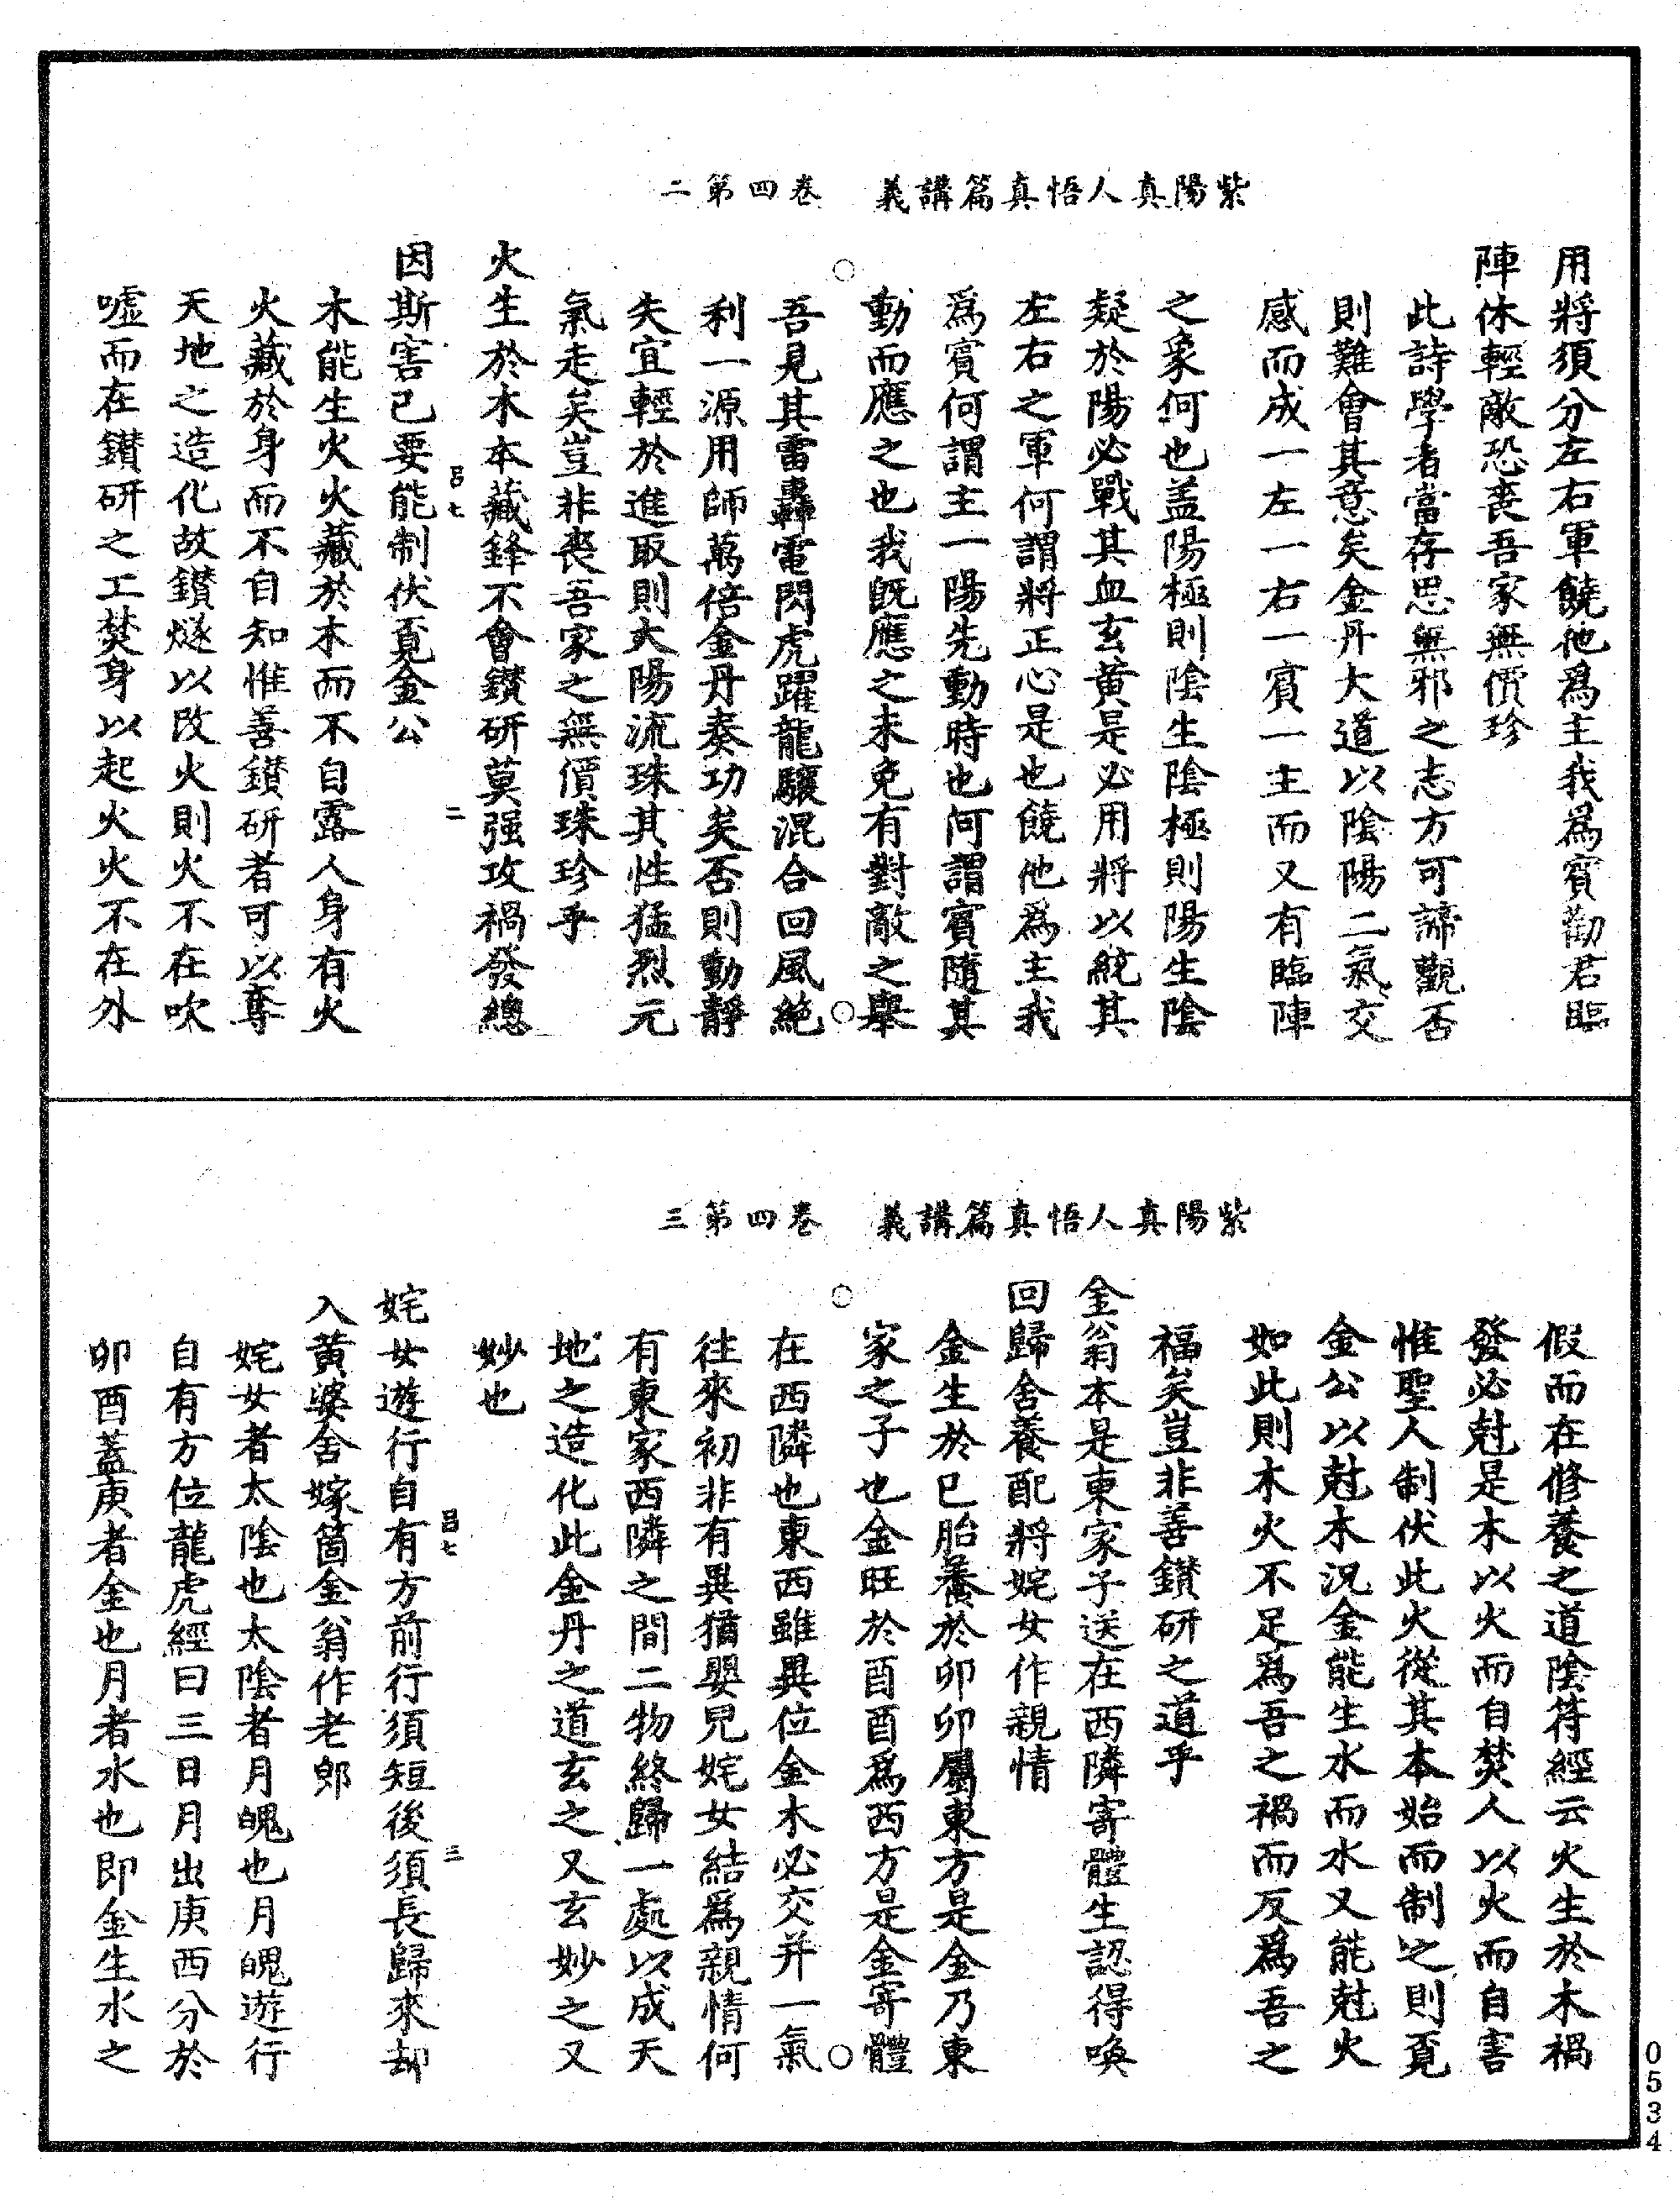 紫陽真人悟真篇講義　卷四第二
用將須分左右軍饒他爲主我爲賓勸君臨
陣休輕敵恐喪吾家無價珍
此詩學者當存思無邪之志方可諦觀否
則難會其意矣金丹大道以陰陽二氣交
感而成一左一右一賓一主而又有臨陣
之象何也蓋陽極則陰生陰極則陽生陰
疑於陽必戰其血玄黄是必用將以統其
左右之軍何謂將正心是也饒他爲主我
爲賓何謂主一陽先動時也何謂賓隨其
動而應之也我既應之未免有對敵之舉
吾見其雷轟電閃虎躍龍驤混合回風絶
利一源用師萬倍金丹奏功矣否則動靜
失宜輕於進取則太陽流珠其性猛烈元
氣走矣豈非喪吾家之無價珠珍乎
火生於木本藏鋒不會鑚研莫强攻禍發總
呂七　二
因斯害己要能制伏覔金公
木能生火火藏於木而不自露人身有火
火藏於身而不自知惟善鑚研者可以奪
天地之造化故鑚燧以改火則火不在吹
嘘而在鑚研之工焚身以起火火不在外
紫陽真人悟真篇講義　卷四第三
假而在修養之道陰符經云火生於木禍
發必尅是木以火而自焚人以火而自害
惟聖人制伏此火從其本始而制之則覔
金公以尅木況金能生水而水又能尅火
如此則木火不足爲吾之禍而反爲吾之
福矣豈非善鑚研之道乎
金翁本是東家子送在西隣寄體生認得喚
回歸舍養配將姹女作親情
金生於巳胎養於卯卯屬東方是金乃東
家之子也金旺於酉酉爲西方是金寄體
在西隣也東西雖異位金木必交并一氣
往來初非有異猶嬰兒姹女結爲親情何
有東家西隣之間二物終歸一處以成天
地之造化此金丹之道玄之又玄妙之又
妙也
呂七　三
姹女遊行自有方前行須短後須長歸來却
入黄婆舍嫁箇金翁作老郎
姹女者太陰也太陰者月魄也月魄遊行
自有方位龍虎經曰三日月出庚西分於
卯酉蓋庚者金也月者水也即金生水之
0534